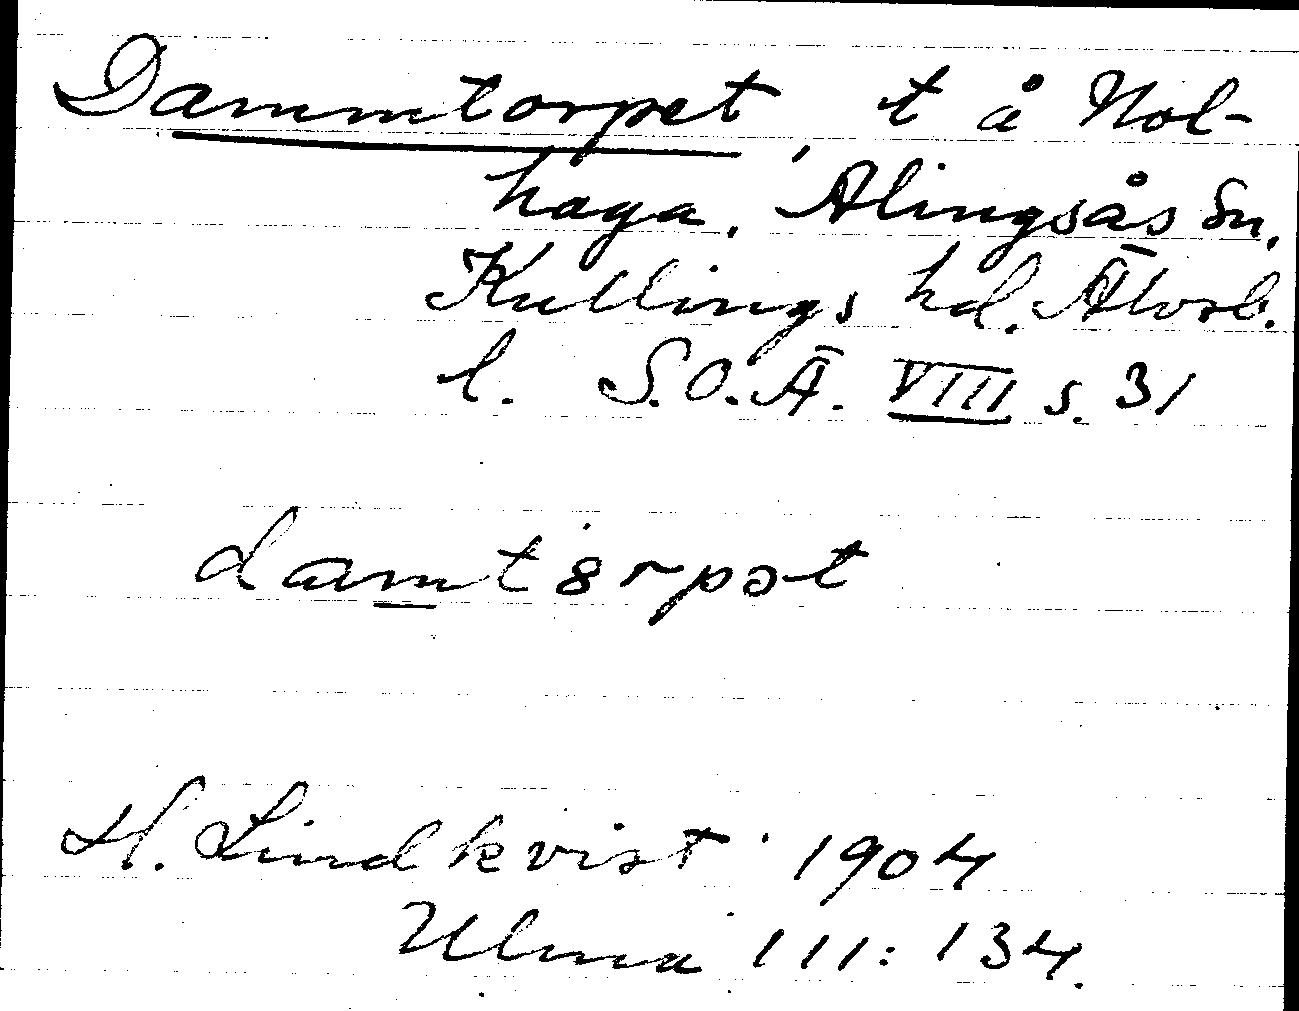 Dammtorpet, t å Nol-
haga, Alingsås sn,
Kullings hd. Älvsb.
l. S.O.Ä. VIII s. 31
damtɵrpət
H. Lindkvist 1904
Ulma 111:134.